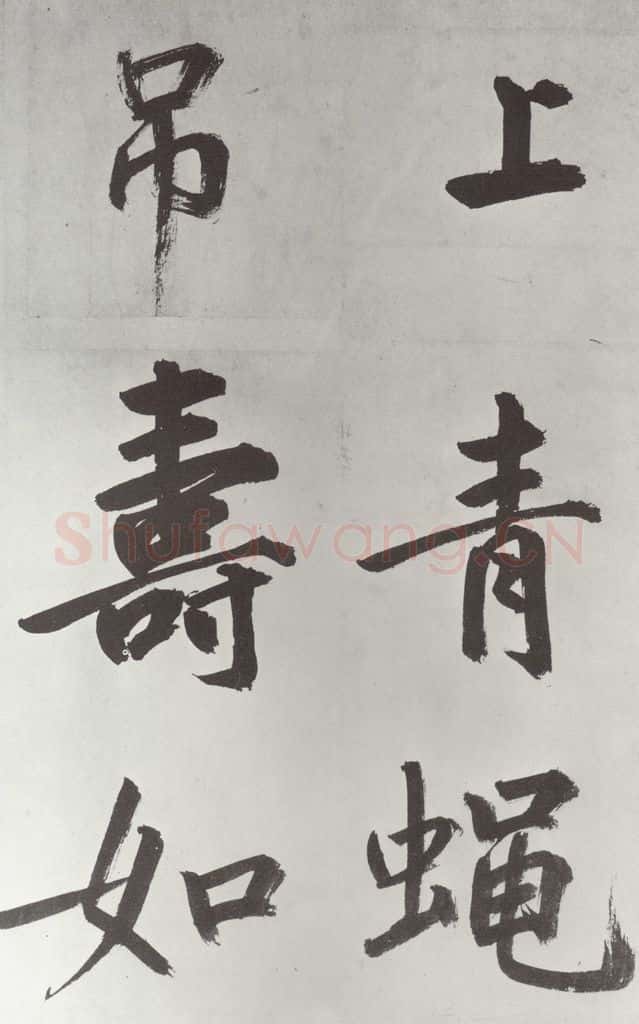 上青蝇
吊壽如
Shufawang.CN